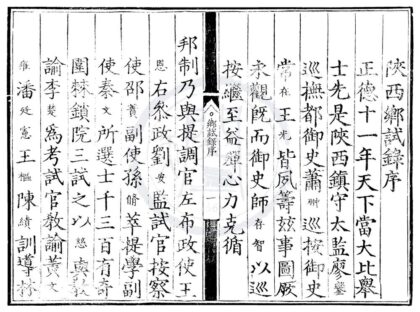 陝西鄉試錄序
正德十一年天下當大比舉
士先是陝西鎮守太監廖鑾
巡撫都御史蕭翀巡按御史
常在王光皆夙籌兹事圖厥
未觀既而御史師存智以巡
按繼至益殫心力克循
鄉試錄序
一
邦制乃與提調官左布政使王
恩右叅政劉安監試官按察
使邵蕡副使孫脩萃提學副
使秦文所選士千三百有奇
圍棘鎖院三試之以
諭李為考試官教諭黃文
潘廷憲王樞陳績訓導